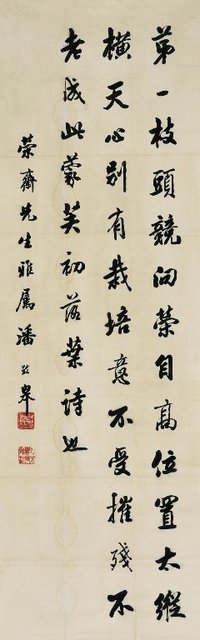 第一枝頭競向榮自高位置太縱
橫天心別有栽培意不受摧殘不
老成此蒙芙初落葉詩也
榮齋先生雅屬潘齡皋